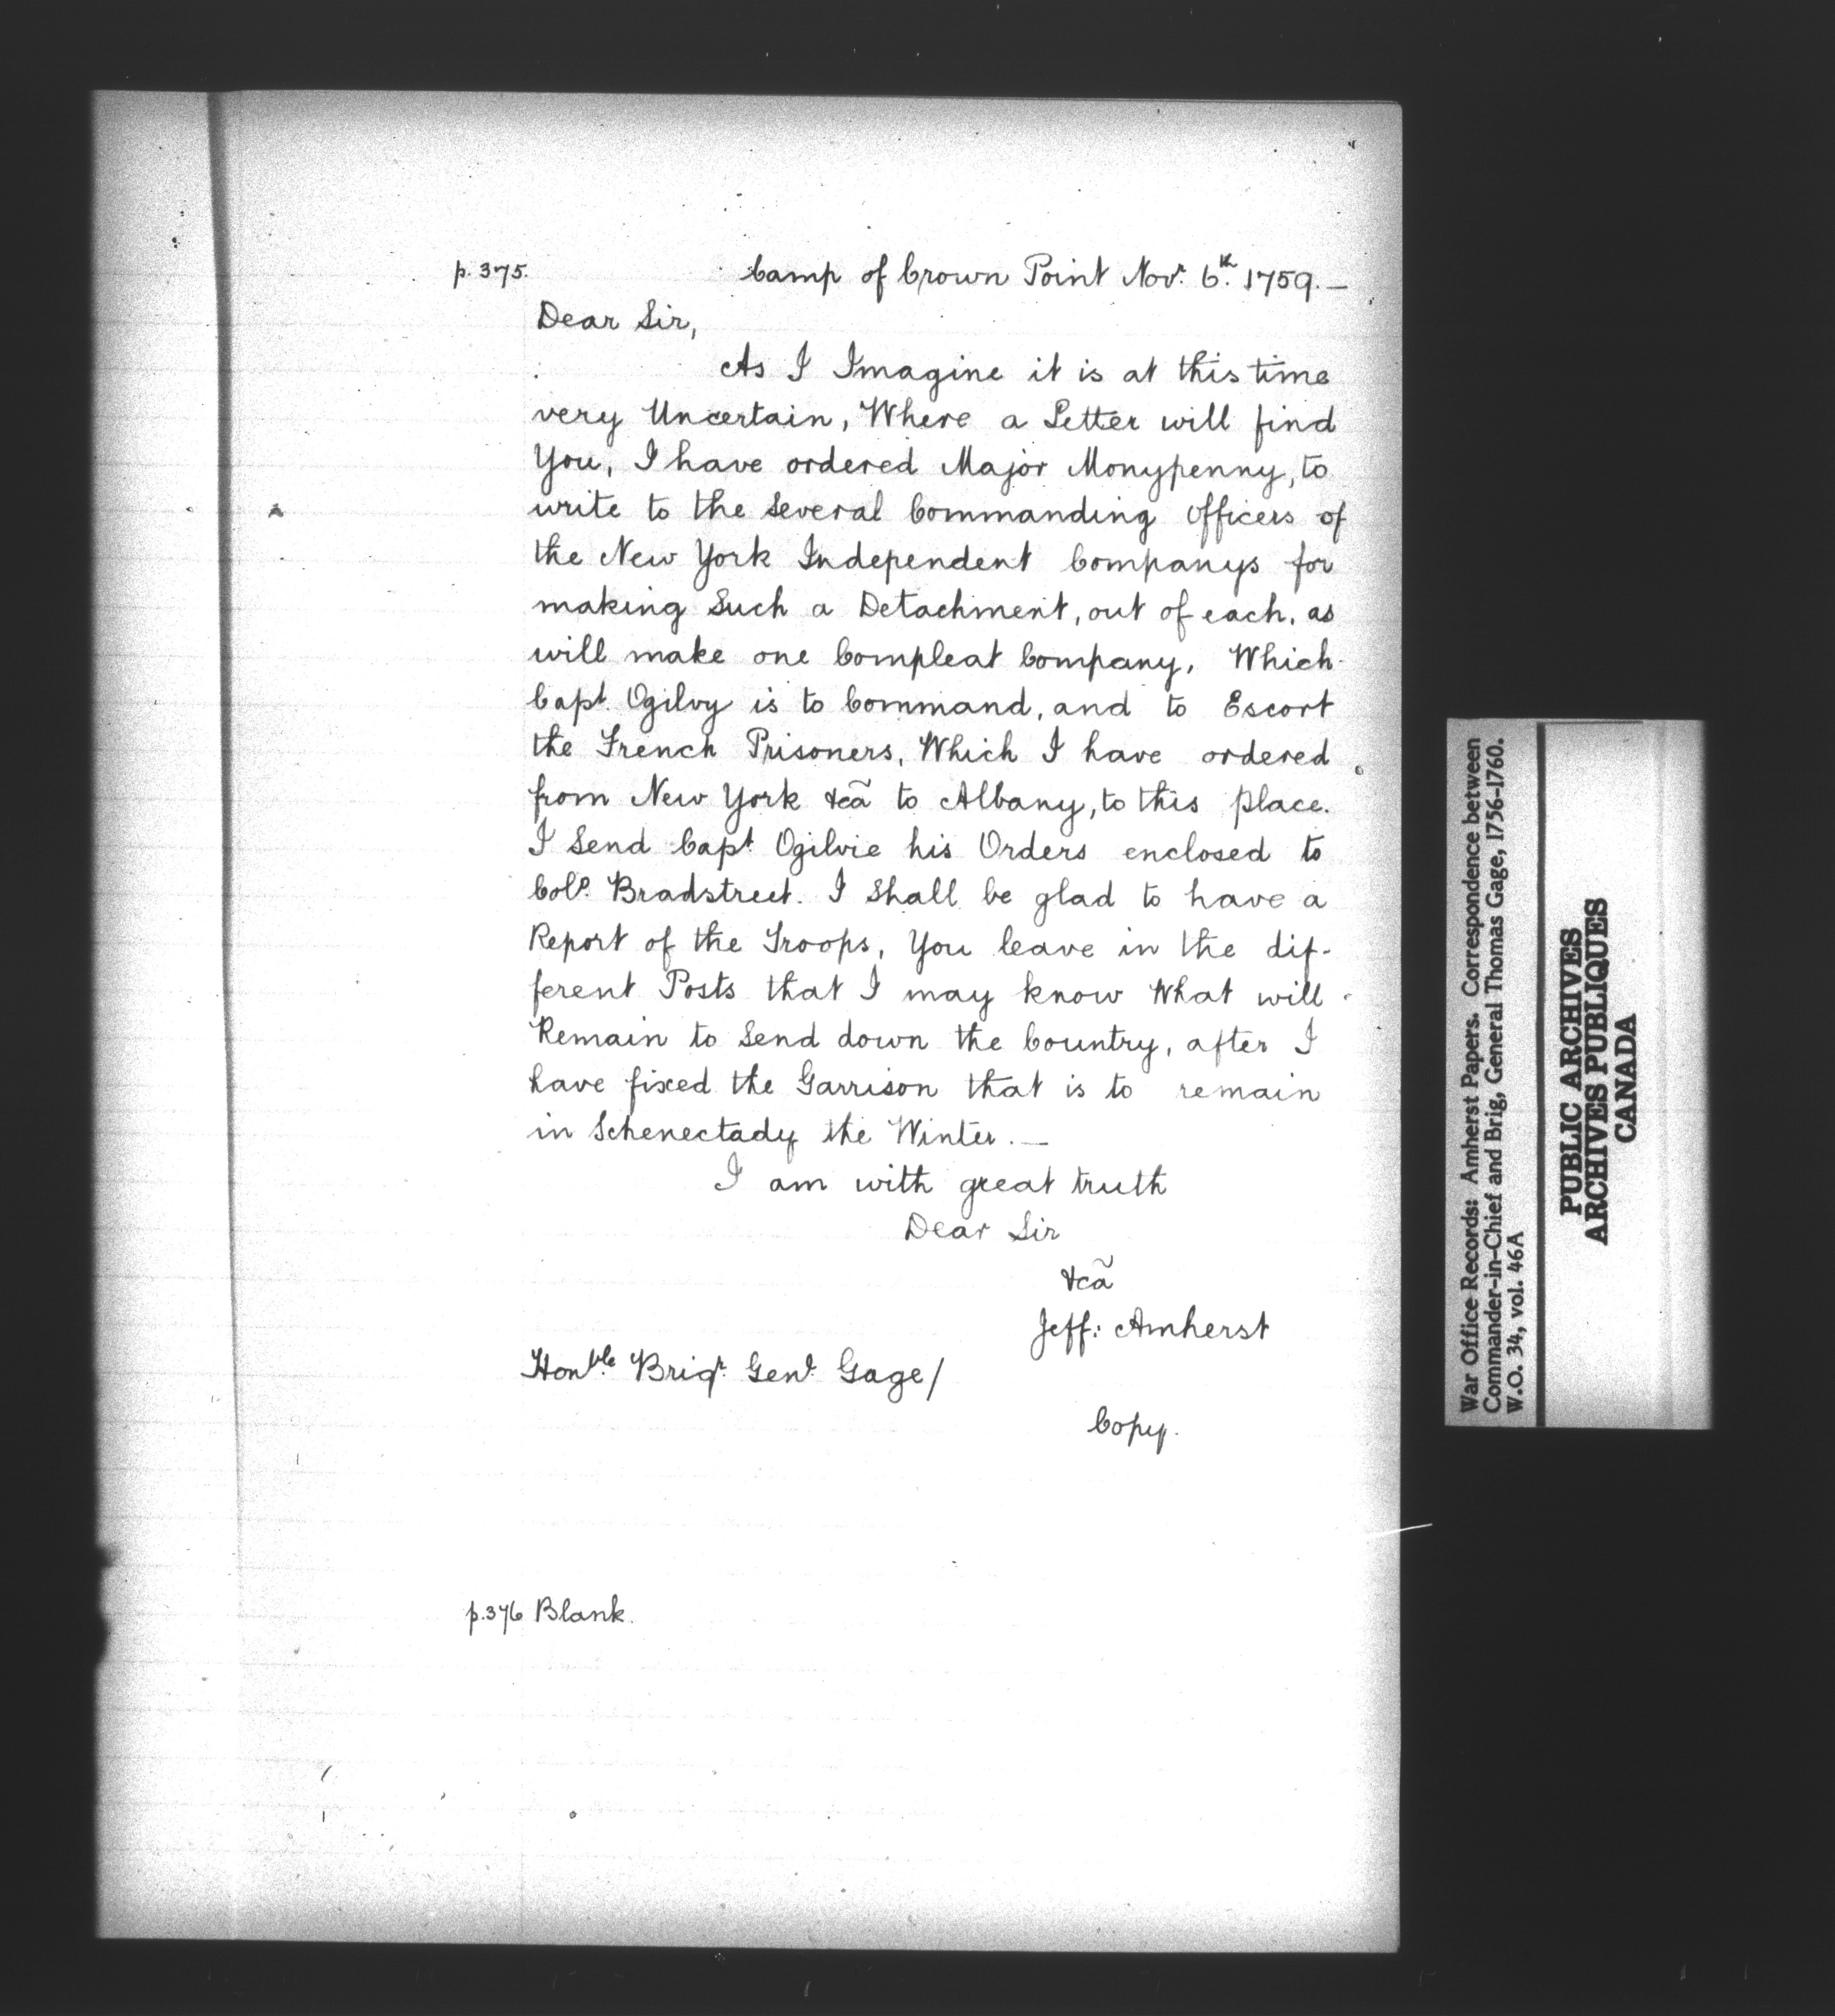 p. 375. Camp of Crown Point Novr. 6th. 1759. —
Dear Sir,
As I Imagine it is at this time
very Uncertain, Where a Letter will find
You, I have ordered Major Monypenny, to
write to the Several Commanding Officers of
the New York Independent Companys for
making Such a Detachment, out of each, as
will make one Compleat Company, Which
Capt. Ogilvy is to Command, and to Escort
the French Prisoners, Which I have ordered
from New York &cã to Albany, to this place.
I Send Capt. Ogilvie his Orders enclosed to
Colo. Bradstreet. I Shall be glad to have a
Report of the Troops, You leave in the dif-
ferent Posts that I may know What will
Remain to Send down the Country, after I
have fixed the Garrison that is to remain
in Schenectady the Winter. —
I am with great truth
Dear Sir
&cã
Jeff: Amherst
Honble. Brigr. Genl. Gage/
Copy.
p. 376 Blank.
War Office Records: Amherst Papers. Correspondence between
Commander-in-Chief and Brig, General Thomas Gage, 1756-1760.
W.O. 34, vol. 46A
PUBLIC ARCHIVES
ARCHIVES PUBLIQUES
CANADA